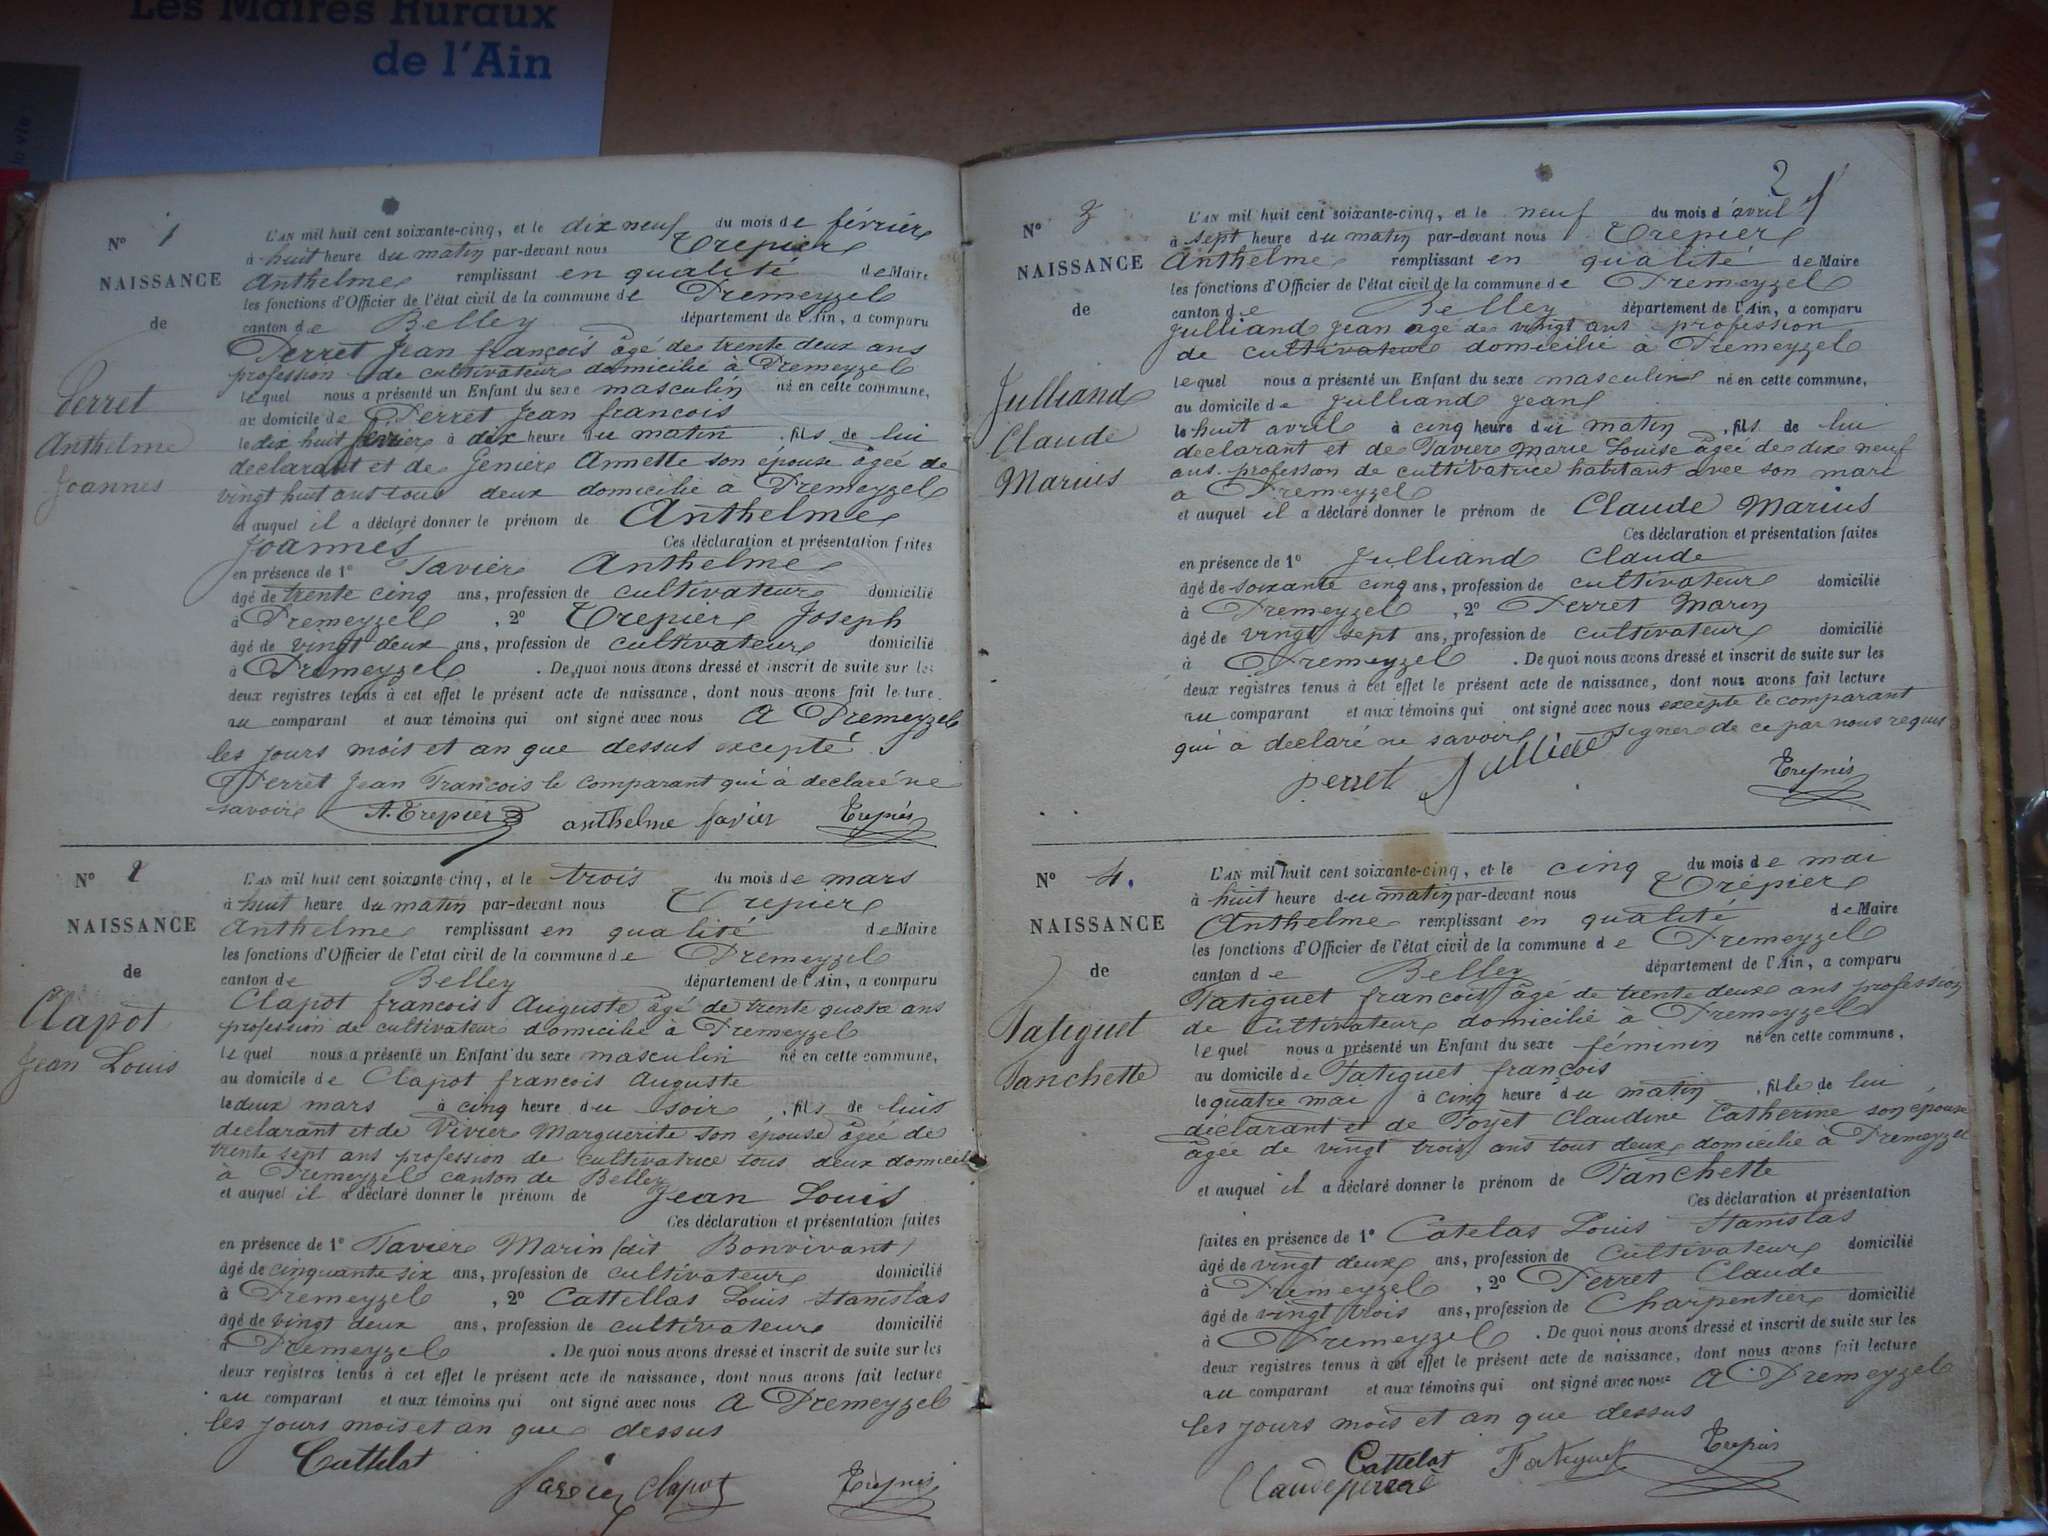 Les Maires Ruraux
de l'Ain
N° 1
NAISSANCE
de
Perret
Anthelme
Joannes
L'AN mil huit cent soixante-cinq, et le dix neuf du mois de février
à huit heure du matin par-devant nous Trepier
Anthelme remplissant en qualité de Maire
les fonctions d'Officier de l'état civil de la commune de Premeyzel
canton de Belley département de l'Ain, a comparu
Perret Jean françois âgé de trente deux ans
profession de cultivateur domicilié à Premeyzel
lequel nous a présenté un Enfant du sexe masculin né en cette commune,
au domicile de Perret Jean francois
le dix huit février à dix heure du matin , fils de lui
declarant et de Genier Annette son épouse âgée de
vingt huit ans tous deux domicilié a Premeyzel
et auquel il a déclaré donner le prénom de Anthelme
Joannes Ces déclaration et présentation faites
en présence de 1° Favier Anthelme
âgé de trente cinq ans, profession de cultivateur domicilié
à Premeyzel , 2° Trepier Joseph
âgé de vingt deux ans, profession de cultivateur domicilié
à Premeyzel . De quoi nous avons dressé et inscrit de suite sur les
deux registres tenus à cet effet le présent acte de naissance, dont nous avons fait lecture
au comparant et aux témoins qui ont signé avec nous A Premeyzel
les jours mois et an que dessus excepté
Perret Jean François le comparant qui à declaré ne
savoir A. Trepier anthelme favier Trepier
N° 2
NAISSANCE
de
Clapot
Jean Louis
L'AN mil huit cent soixante-cinq, et le trois du mois de mars
à huit heure du matin par-devant nous Trepier
Anthelme remplissant en qualité de Maire
les fonctions d'Officier de l'état civil de la commune de Premeyzel
canton de Belley département de l'Ain, a comparu
Clapot francois Auguste âgé de trente quatre ans
profession de cultivateur domicilié à Premeyzel
lequel nous a présenté un Enfant du sexe masculin né en cette commune,
au domicile de Clapot francois Auguste
le deux mars à cinq heure du soir , fils de luis
declarant et de Vivier Marguerite son épouse âgée de
trente sept ans profession de cultivatrice tous deux domicilié
à Premeyzel canton de Belley
et auquel il a déclaré donner le prénom de Jean Louis
Ces déclaration et présentation faites
en présence de 1° Favier Marin (dit Bonvivant)
âgé de cinquante six ans, profession de cultivateur domicilié
à Premeyzel , 2° Cattellas Louis Stanislas
âgé de vingt deux ans, profession de cultivateur domicilié
à Premeyzel . De quoi nous avons dressé et inscrit de suite sur les
deux registres tenus à cet effet le présent acte de naissance, dont nous avons fait lecture
au comparant et aux témoins qui ont signé avec nous A Premeyzel
les jours mois et an que dessus
Cattelat
favier Clapot Trepier
2
N° 3
NAISSANCE
de
Julliand
Claude
Marius
L'AN mil huit cent soixante-cinq, et le neuf du mois d'avril
à sept heure du matin par-devant nous Trepier
Anthelme remplissant en qualité de Maire
les fonctions d'Officier de l'état civil de la commune de Premeyzel
canton de Belley département de l'Ain, a comparu
Julliand Jean agé de vingt ans profession
de cultivateur domicilié à Premeyzel
lequel nous a présenté un Enfant du sexe masculin né en cette commune,
au domicile de Julliand Jean
le huit avril à cinq heure du matin , fils de lui
declarant et de Favier Marie Louise âgée de dix neuf
ans profession de cultivatrice habitant avec son mari
a Premeyzel
et auquel il a déclaré donner le prénom de Claude Marius
Ces déclaration et présentation faites
en présence de 1° Julliand Claude
âgé de soixante cinq ans, profession de cultivateur domicilié
à Premeyzel , 2° Perret Marin
âgé de vingt sept ans, profession de cultivateur domicilié
à Premeyzel . De quoi nous avons dressé et inscrit de suite sur les
deux registres tenus à cet effet le présent acte de naissance, dont nous avons fait lecture
au comparant et aux témoins qui ont signé avec nous excepte le comparant
qui à declaré ne savoir signer de ce par nous requis
perret Trepier
N° 4.
NAISSANCE
de
Fatiguet
Fanchette
L'AN mil huit cent soixante-cinq, et le cinq du mois de mai
à huit heure du matin par-devant nous Trépier
Anthelme remplissant en qualité de Maire
les fonctions d'Officier de l'état civil de la commune de Premeyzel
canton de Belley département de l'Ain, a comparu
Fatiguet francois âgé de trente deux ans profession
de cultivateur domicilié à Premeyzel
lequel nous a présenté un Enfant du sexe féminin né en cette commune,
au domicile de Fatiguet françois
le quatre mai à cinq heure du matin , fille de lui
déclarant et de Poyet Claudine Catherine son épouse
âgée de vingt trois ans tout deux domicilié à Premeyzel
et auquel il a déclaré donner le prénom de Fanchette
Ces déclaration et présentation
faites en présence de 1° Catelas Louis Stanislas
âgé de vingt deux ans, profession de cultivateur domicilié
à Premeyzel , 2° Perret Claude
âgé de vingt trois ans, profession de Charpentier domicilié
à Premeyzel . De quoi nous avons dressé et inscrit de suite sur les
deux registres tenus à cet effet le présent acte de naissance, dont nous avons fait lecture
au comparant et aux témoins qui ont signé avec nous A Premeyzel
les jours mois et an que dessus
Cattelat Fatiguet Trepier
Claude perret